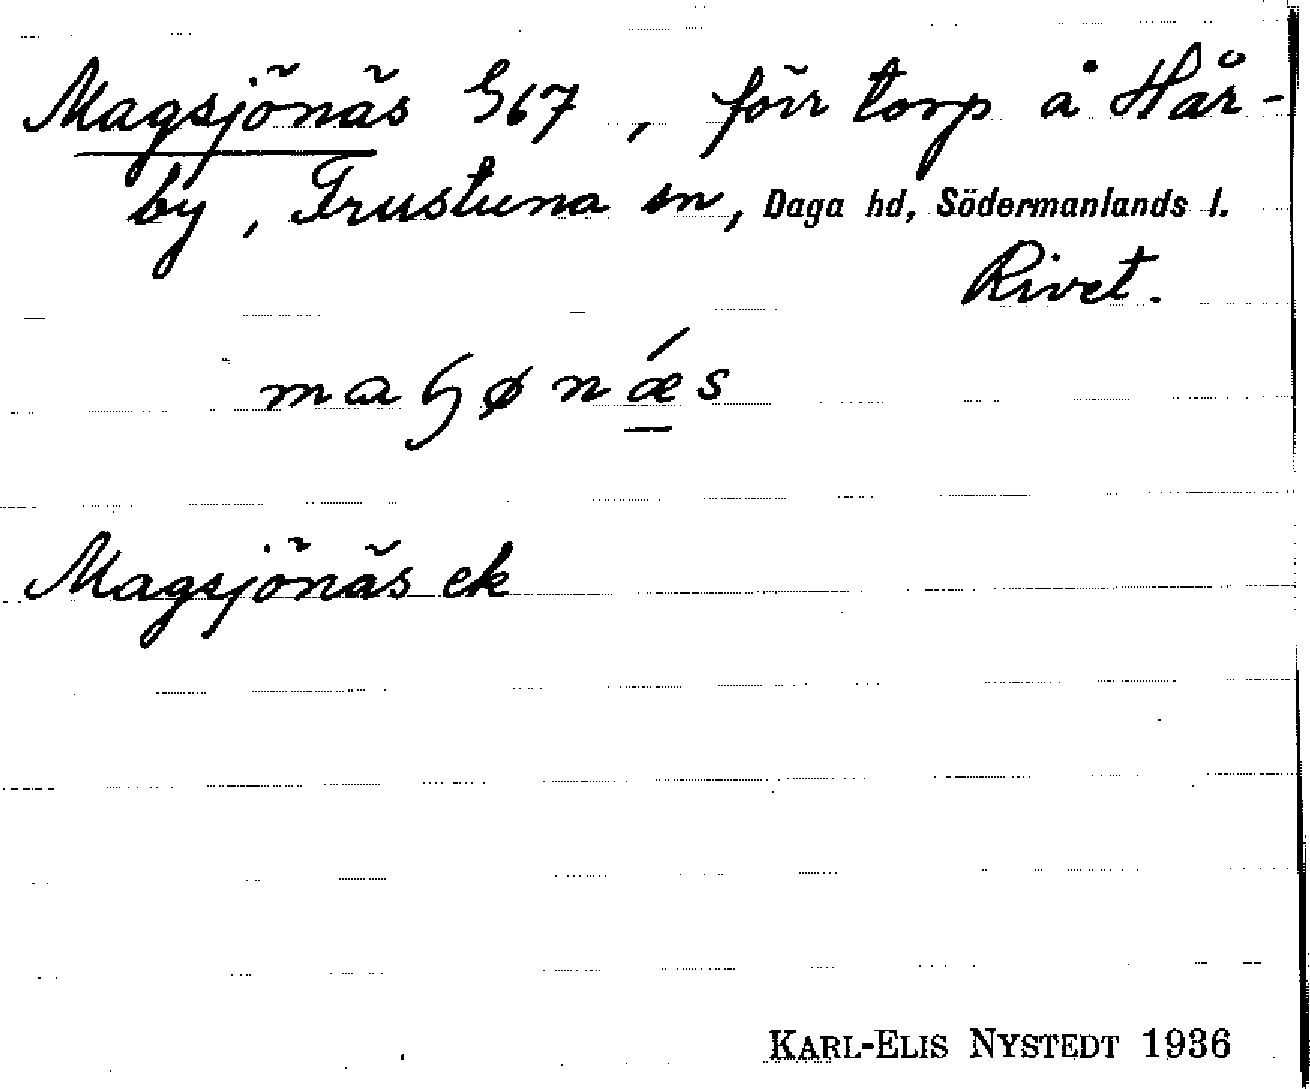 Magsjönäs G67, förr torp å Här-
by, Frustuna sn, Daga hd, Södermanlands l.
Rivet.
maɧønǽs
Magsjönäs ek
KARL-ELIS NYSTEDT 1936